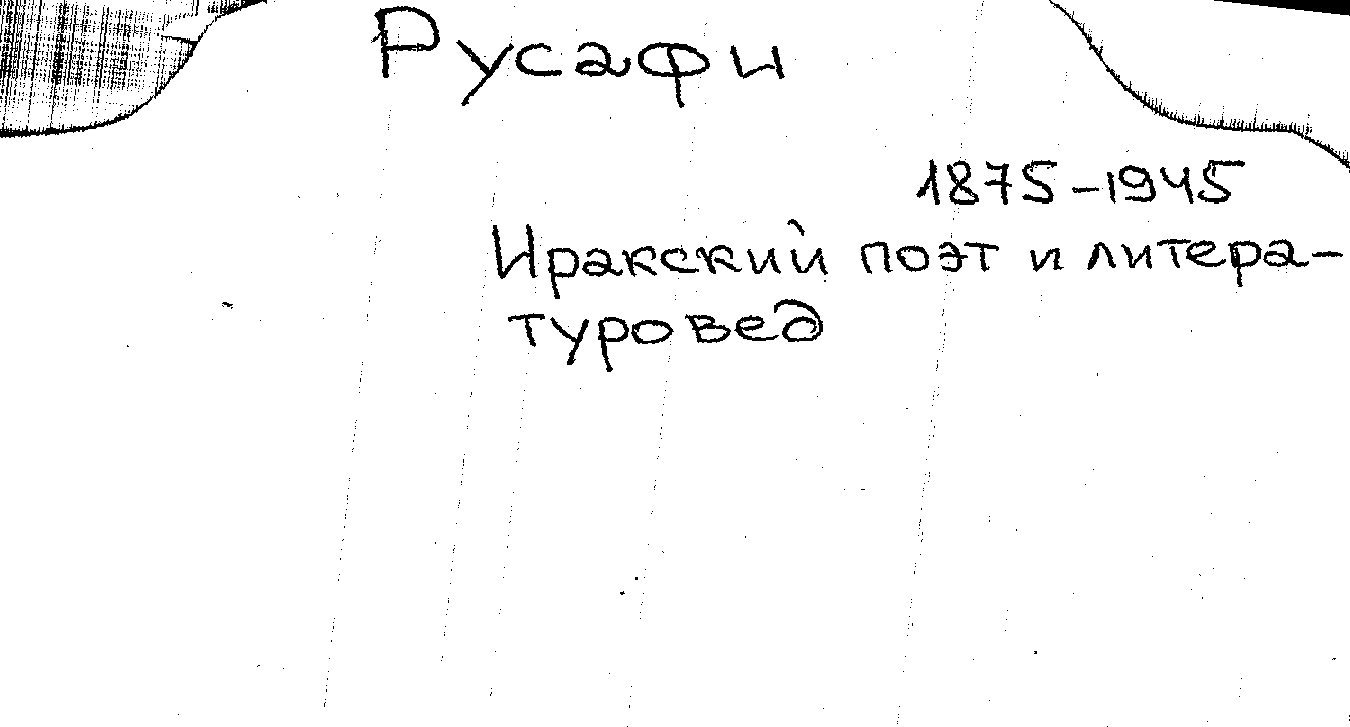 Русафи
1875-1945
Иракский поэт и литера-
туровед